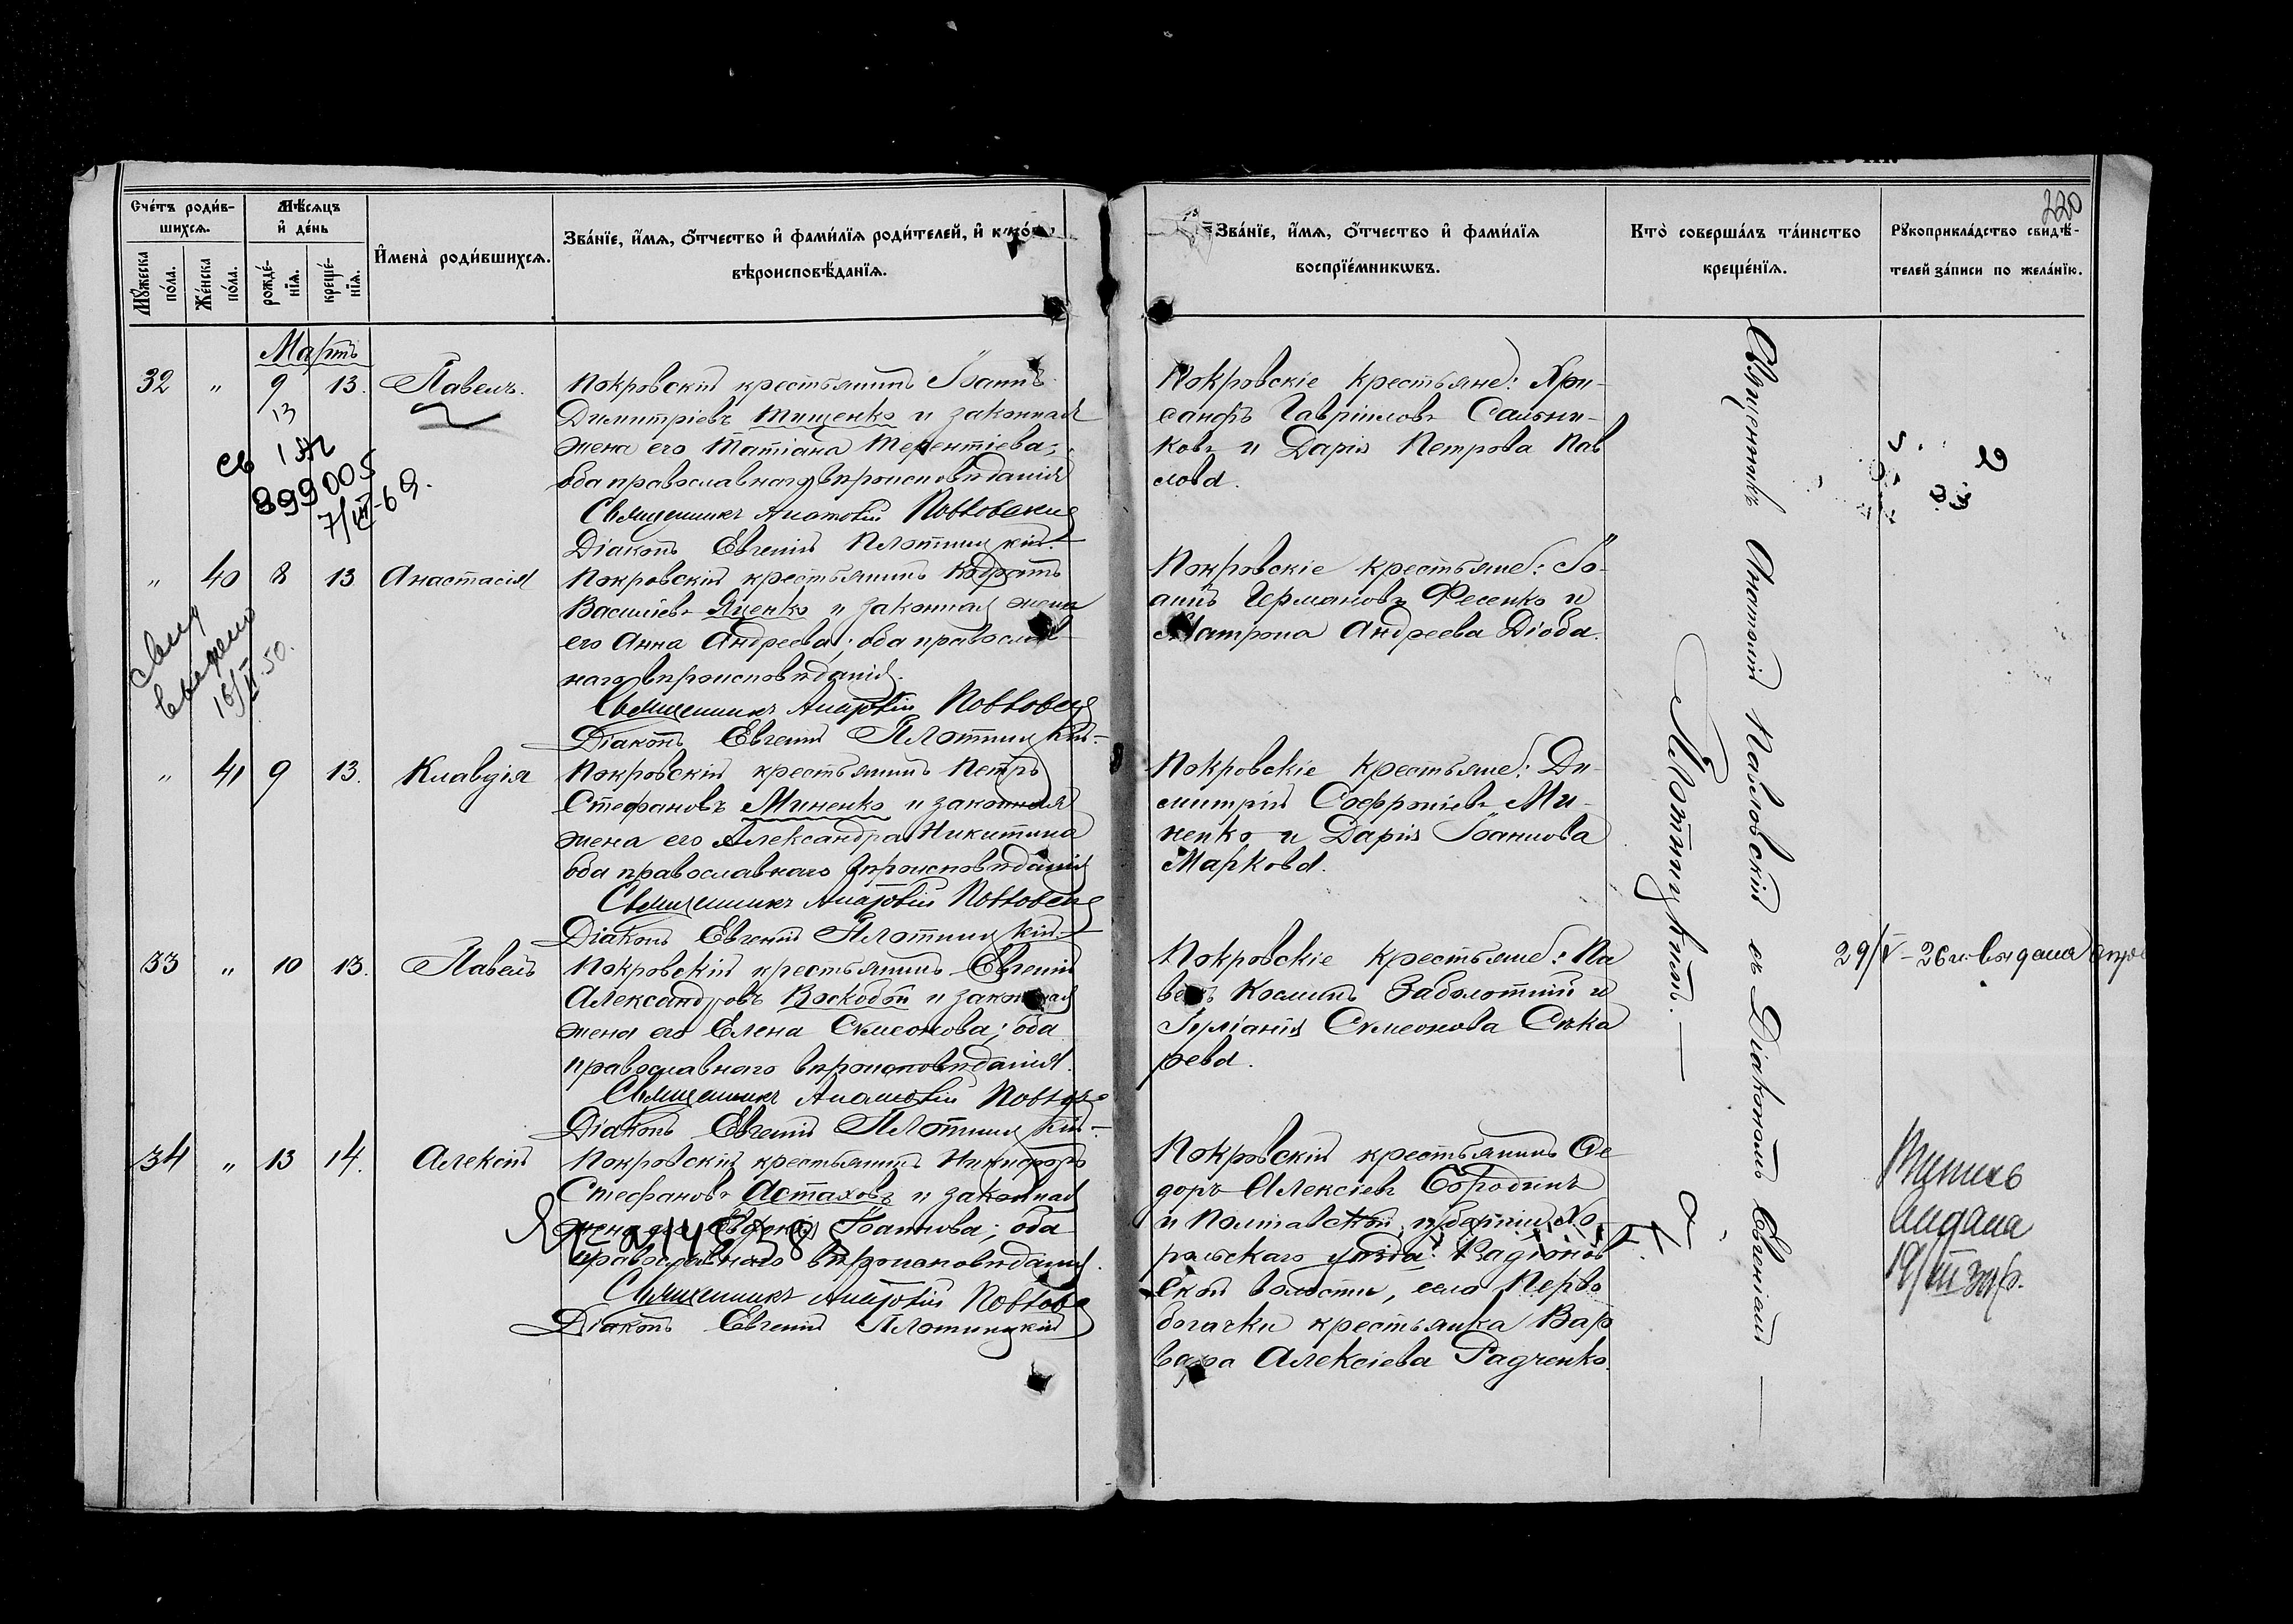 220
Счетъ родив-
шихся.
Мѣсяцъ
и день
Мужеска
пола.
Женска
пола.
рожде-
нія.
креще-
нія.
Имена родившихся.
Званіе, имя, отчество и фамилія родителей, и
вѣроисповѣданія.
Званіе, имя, отчество и фамилія
воспріемниковъ.
Кто совершалъ таинство
крещенія.
Рукоприкладство свидѣ-
телей записи по желанію.
Мартъ
32 " 9 13. Павелъ.
13
899005
Покровскій крестьянинъ Іоаннъ
Димитріевъ Тищенко и законная
жена его Татіана Терентіева;
оба православнаго вѣроисповѣданія
Священникъ Анатолій
Діаконъ Евгеній Плотницкій.
Покровскіе крестьяне: Хри-
санфъ Гавріиловъ Сальни-
ковъ и Дарія Петрова Пав
лова.
" 40 8 13 Анастасія
Покровскій крестьянинъ Кодратъ
Василіевъ Яценко и законная жена
его Анна Андреева; оба православ
наго вѣроисповѣданія.
Священникъ Анатолій
Діаконъ Евгеній Плотницкій.
Покровскіе крестьяне: Іо-
аннъ Германовъ Фесенко и
Матрона Андреева Діоба.
" 41 9 13. Клавдія
Покровскій крестьянинъ Петръ
Стефановъ Миненко и законная
жена его Александра Никитина
оба православнаго вѣроисповѣданія
Священникъ Анатолій
Діаконъ Евгеній Плотницкій.
Покровскіе крестьяне: Ди-
митрій Софроніевъ Ми-
ненко и Дарія Іоаннова
Маркова.
33 " 10 13. Павелъ
Покровскій крестьянинъ Евгеній
Александровъ Воскобой и законная
жена его Елена Симеонова; оба
православнаго вѣроисповѣданія.
Священникъ Анатолій
Діаконъ Евгеній Плотницкій.
Покровскіе крестьяне: Па
велъ Косминъ Заболотній и
Іуліанія Симеонова Сѣка
рева.
34 " 13 14. Алексій
Покровскій крестьянинъ Никифоръ
Стефановъ Астаховъ и законная
жена его Іоаннова; оба
православнаго вѣроисповѣданія.
Священникъ Анатолій
Діаконъ Евгеній Плотницкій
Покровскій крестьянинъ Ѳе
доръ Алексіевъ Бородинъ
и Полтавской губерніи Хо
рольскаго уѣзда
ской волости, села Перво
богачки крестьянка Вар
вара Алексіева Радченко.
Священникъ Анатолій Павловскій съ Діакономъ Евгеніемъ
Плотницкимъ.
29/V-26 г. выдана
выдана